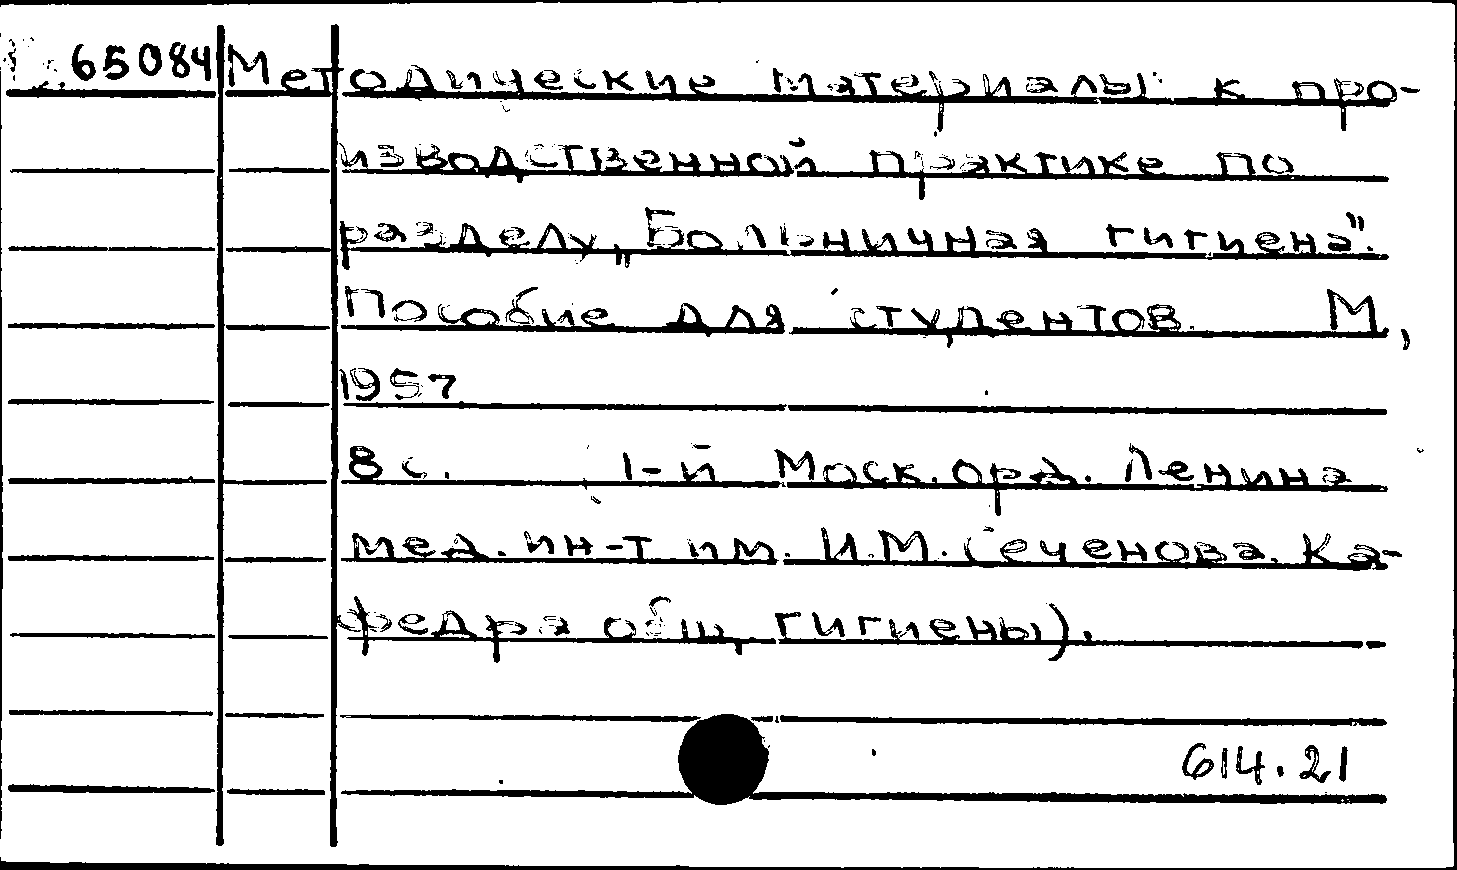 65084 Методические материалы к про-
изводственной практике по
разделу „Больничная гигиена".
Пособие для студентов. М,
1957
8 с. 1-й Моск. орд. Ленина
мед. ин-т им. И.М. Сеченова. Ка-
федра общ. гигиены).
614.21